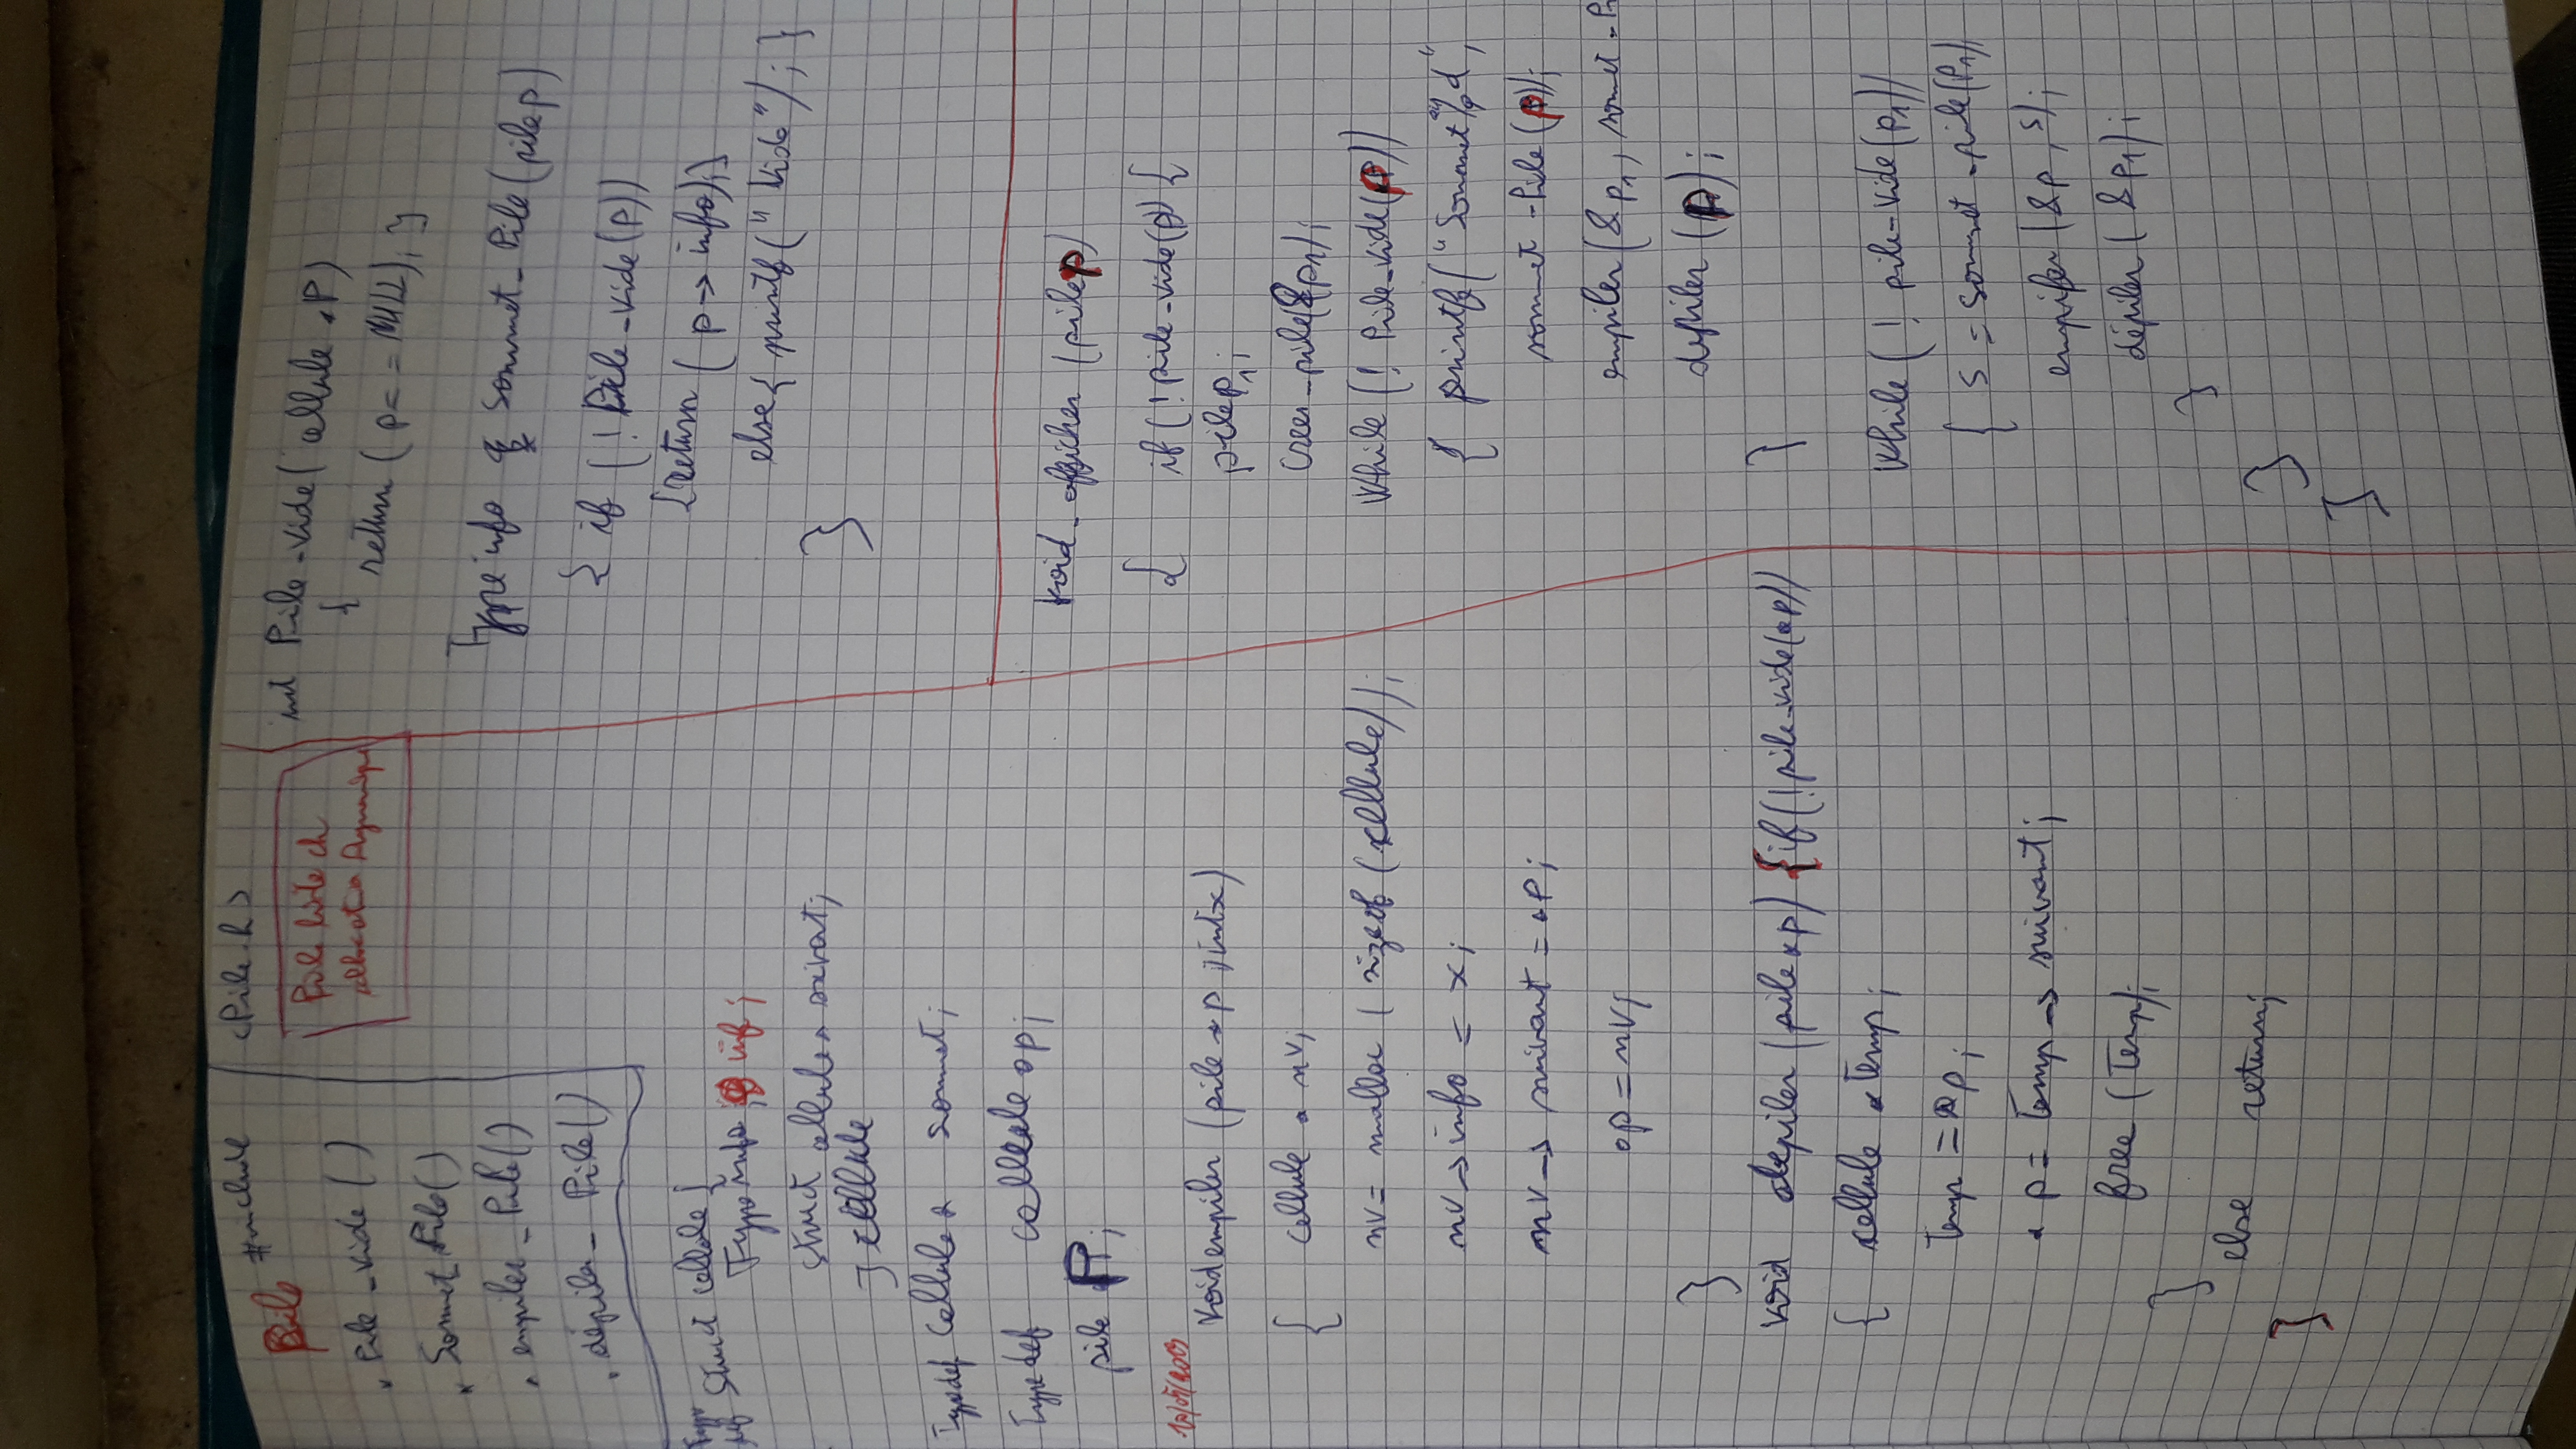 Pile #include <Pile.h>
Pile liste ch
allocation Dynamiqu
. Pile_vide ()
. Sommet_Pile()
. empiler_Pile()
. dépiler_Pile()
Type def Struct cellule {
Type info ; inf ;
struct cellule * suivant;
} cellule
Typedef cellule * sommet;
Typedef cellule *p;
pile P;
void empiler (pile *p ; int x)
{ cellule * nv;
nv = malloc ( sizeof (cellule));
nv -> info = x;
nv -> suivant = *p;
*p = nv;
}
void depiler (pile *p) { if (! pile_vide(*p))
{ cellule * Temp;
Temp = *p;
* p = Temp -> suivant;
free (Temp);
}
else return;
}
int Pile_vide( cellule *P)
{
return ( p = = NULL); }
Type info Sommet_Pile (pile p)
{ if ( ! Pile_vide (p))
{return ( p -> info);}
else { printf (" Vide"); }
}
void_afficher (pile p)
{ if ( ! pile_vide(p)) {
pile p1;
creer_pile(&p1);
While (! Pile_vide(p))
{ printf ( " Sommet %d ",
sommet_Pile (p));
empiler (& p1, sommet_P
depiler (p);
}
While ( ! pile_vide (p1))
{ s = sommet_pile(P1)
empiler (&p , s);
dépiler ( &p1);
}
}
}